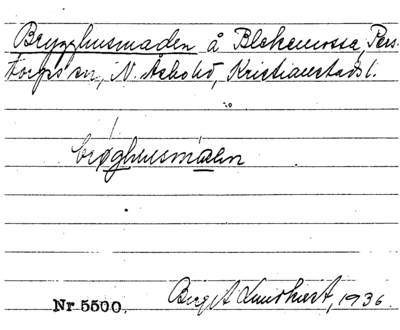 Brygghusmåden å Blekemossa, Pers-
torps sn, N. Åsbo hd, Kristianstads l.
brøghusmåden
Nr 5500. Birgit Lundkvist, 1936.